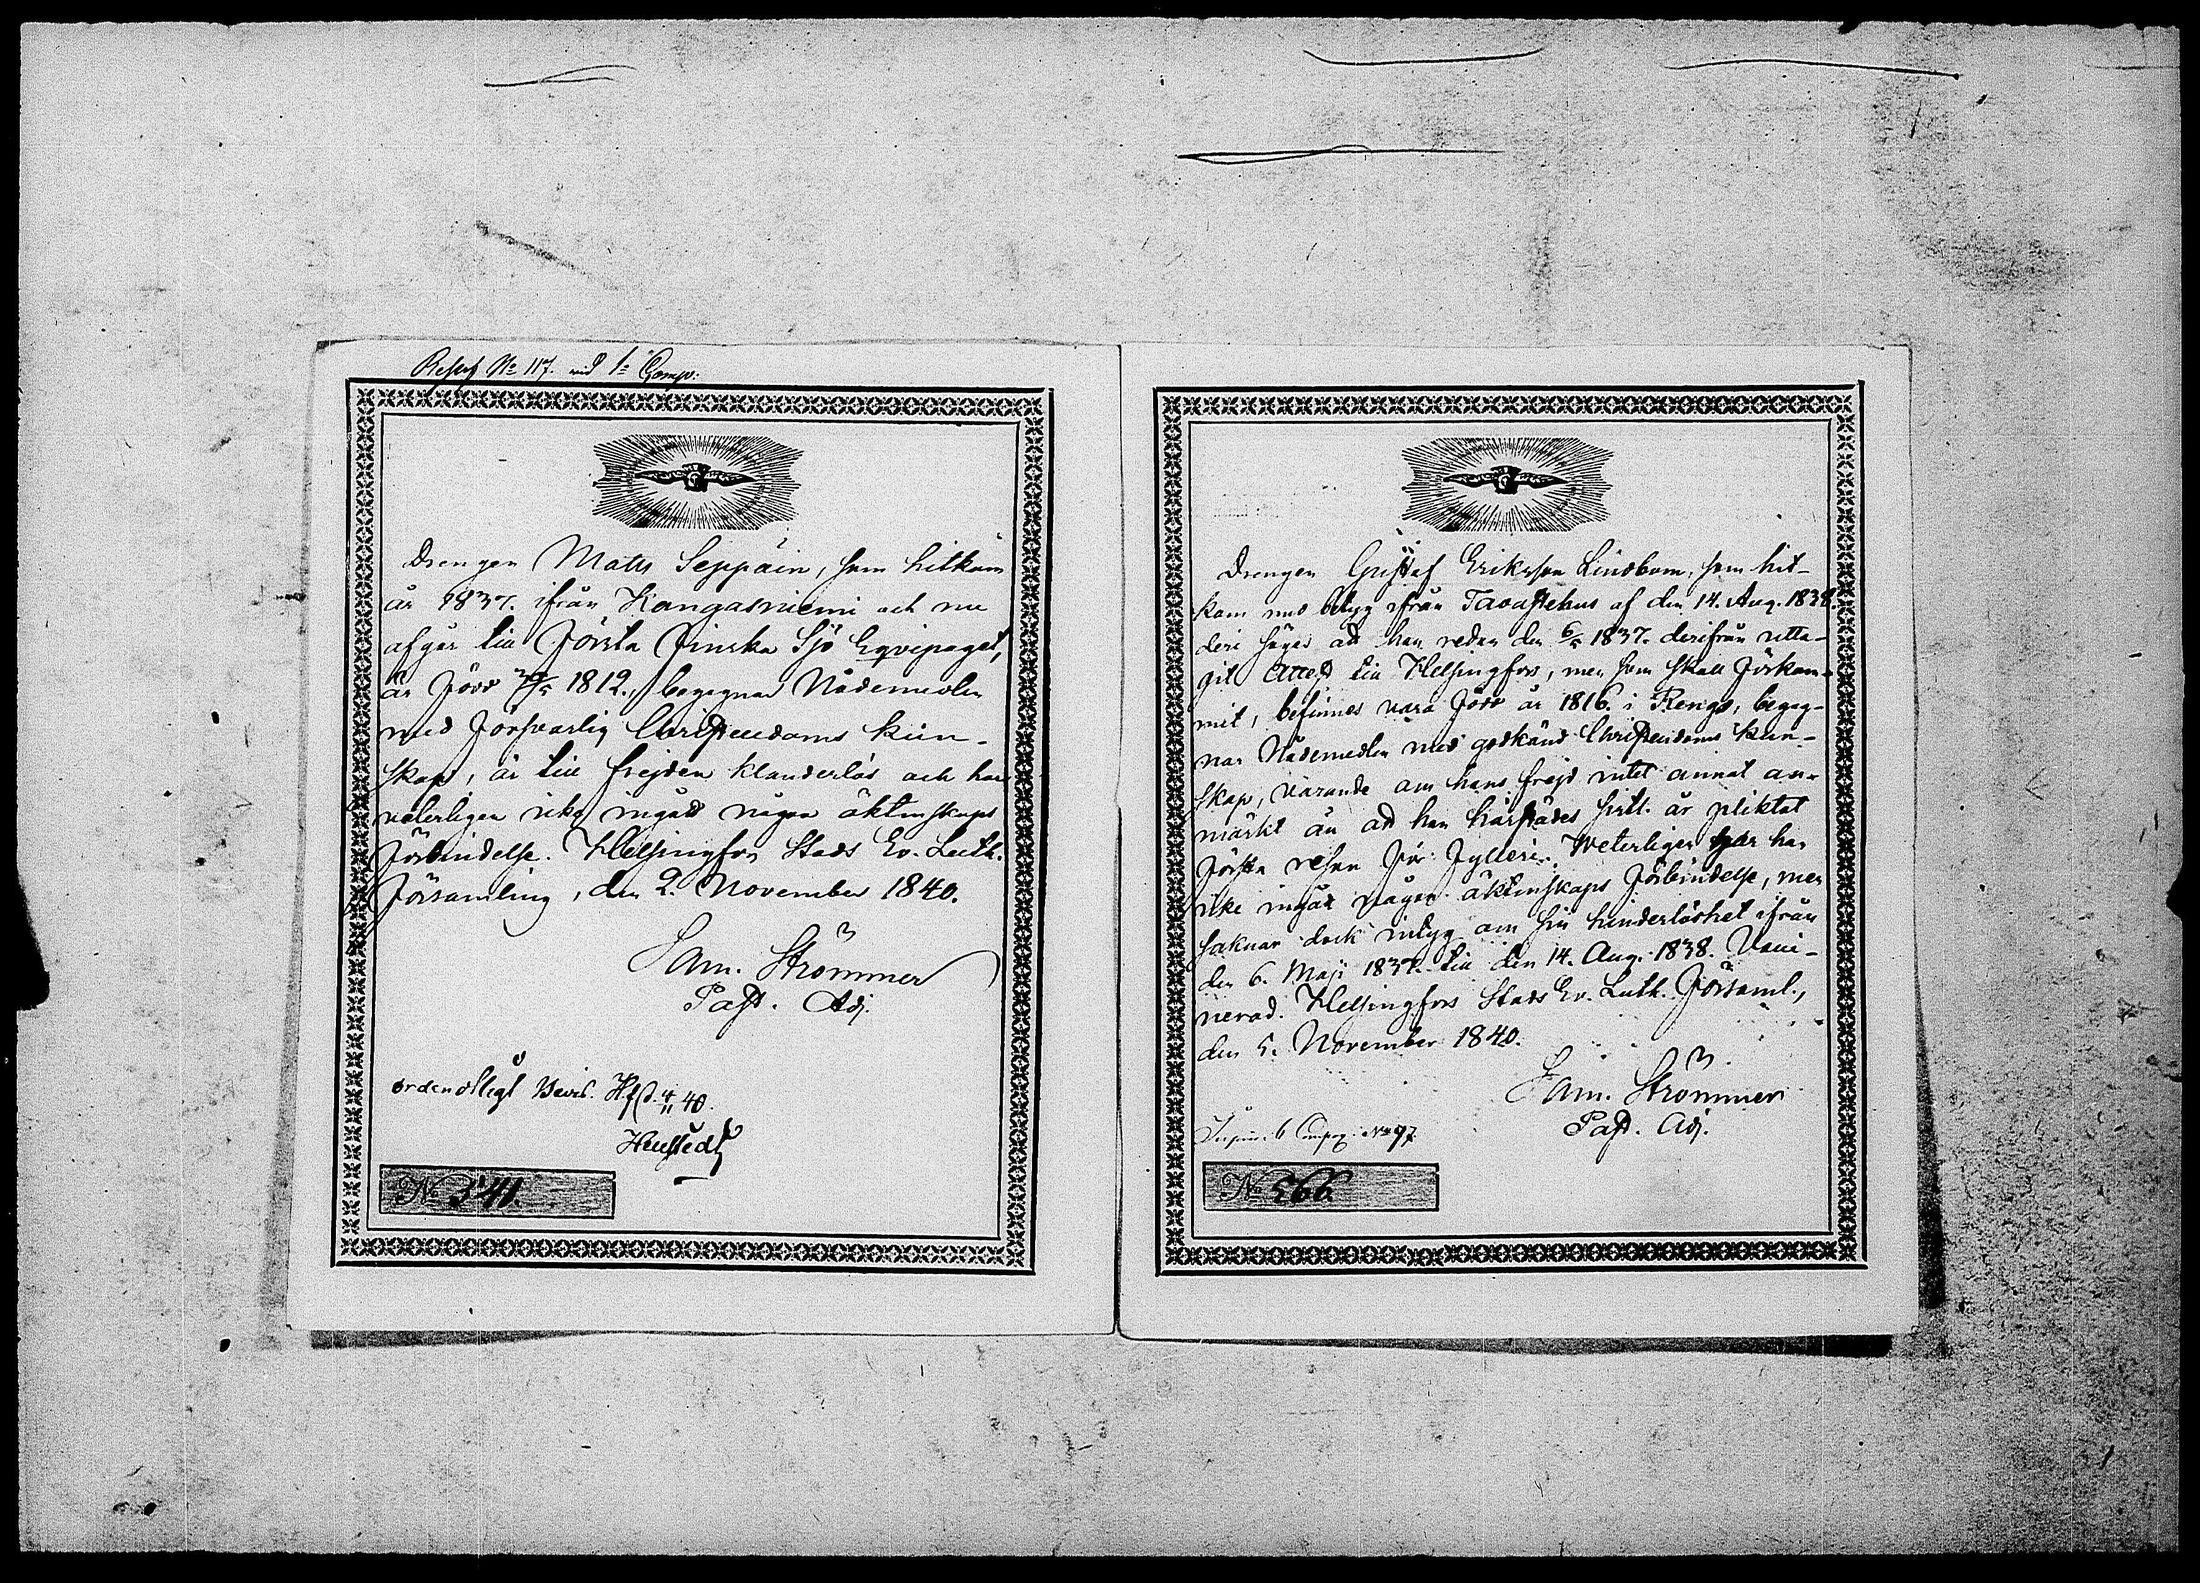 No 117. vid 1:a Comp:
Drengen Matts Seppäin, som hitkom
år 1837. ifrån Kangasniemi och nu
afgår till Första Finska Sjö Eqvipaget,
är född 1812., begagnar Nådemedlen
med försvarlig Christendoms kun-
skap, är till frejden klanderlös och har
veterligen icke ingått någon äktenskaps
förbindelse. Helsingfors Stads Ev. Luth.
Församling, den 2. November 1840.
Sam. Strömmer
Past. Adj.
ordentligt Bevis. Hfs d. 4/11 40.
No 541.
Drengen Gustaf Eriksson Lindbom, som hit-
kom med betyg ifrån Tavastehus af den 14. Aug. 1838.
deri säges att han redan den 6/5 1837. derifrån utta-
git Attest till Helsingfors, men som skall förkom-
mit, befinnes vara född år 1816. i Rengo, begag-
nar Nådemedlen med godkänd Christendoms kun-
skap, varande om hans frejd intet annat an-
märkt än att han härstädes sistl. år pliktat
första resan för fylleri. Veterligen har han
icke ingått någon äktenskaps förbindelse, men
saknar dock intyg om sin hinderlöshet ifrån
den 6. Maji 1837. till den 14. Aug. 1838. Vacci-
nerad. Helsingfors Stads Ev. Luth. Församl.,
den 5. November 1840.
Sam. Strömmer
Past. Adj.
No 97.
No 566.